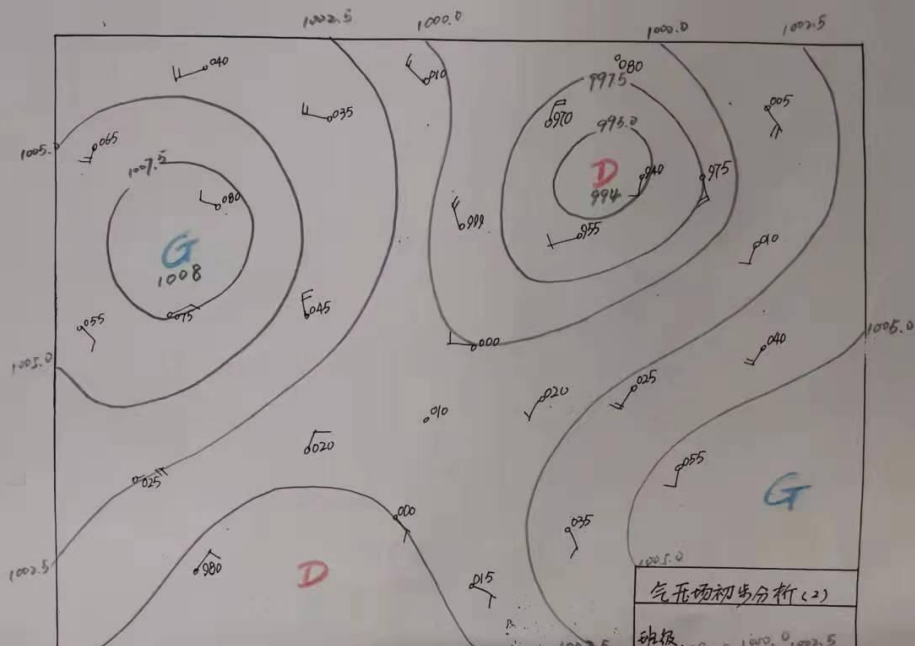 1002.5 1000.0 1000.0 1002.5
040 010 080
9975
035 970 005
065 995.0
1005.0
1007.5 D 040 975
080 994
999 955 010
G
1008
075 045
055 000 1005.0
040
1005.0
025
020
010
020 055
025 G
000 035
1002.5 980 D 1005.0
015 气压场初步分析(2)
班级
1000.0 1002.5